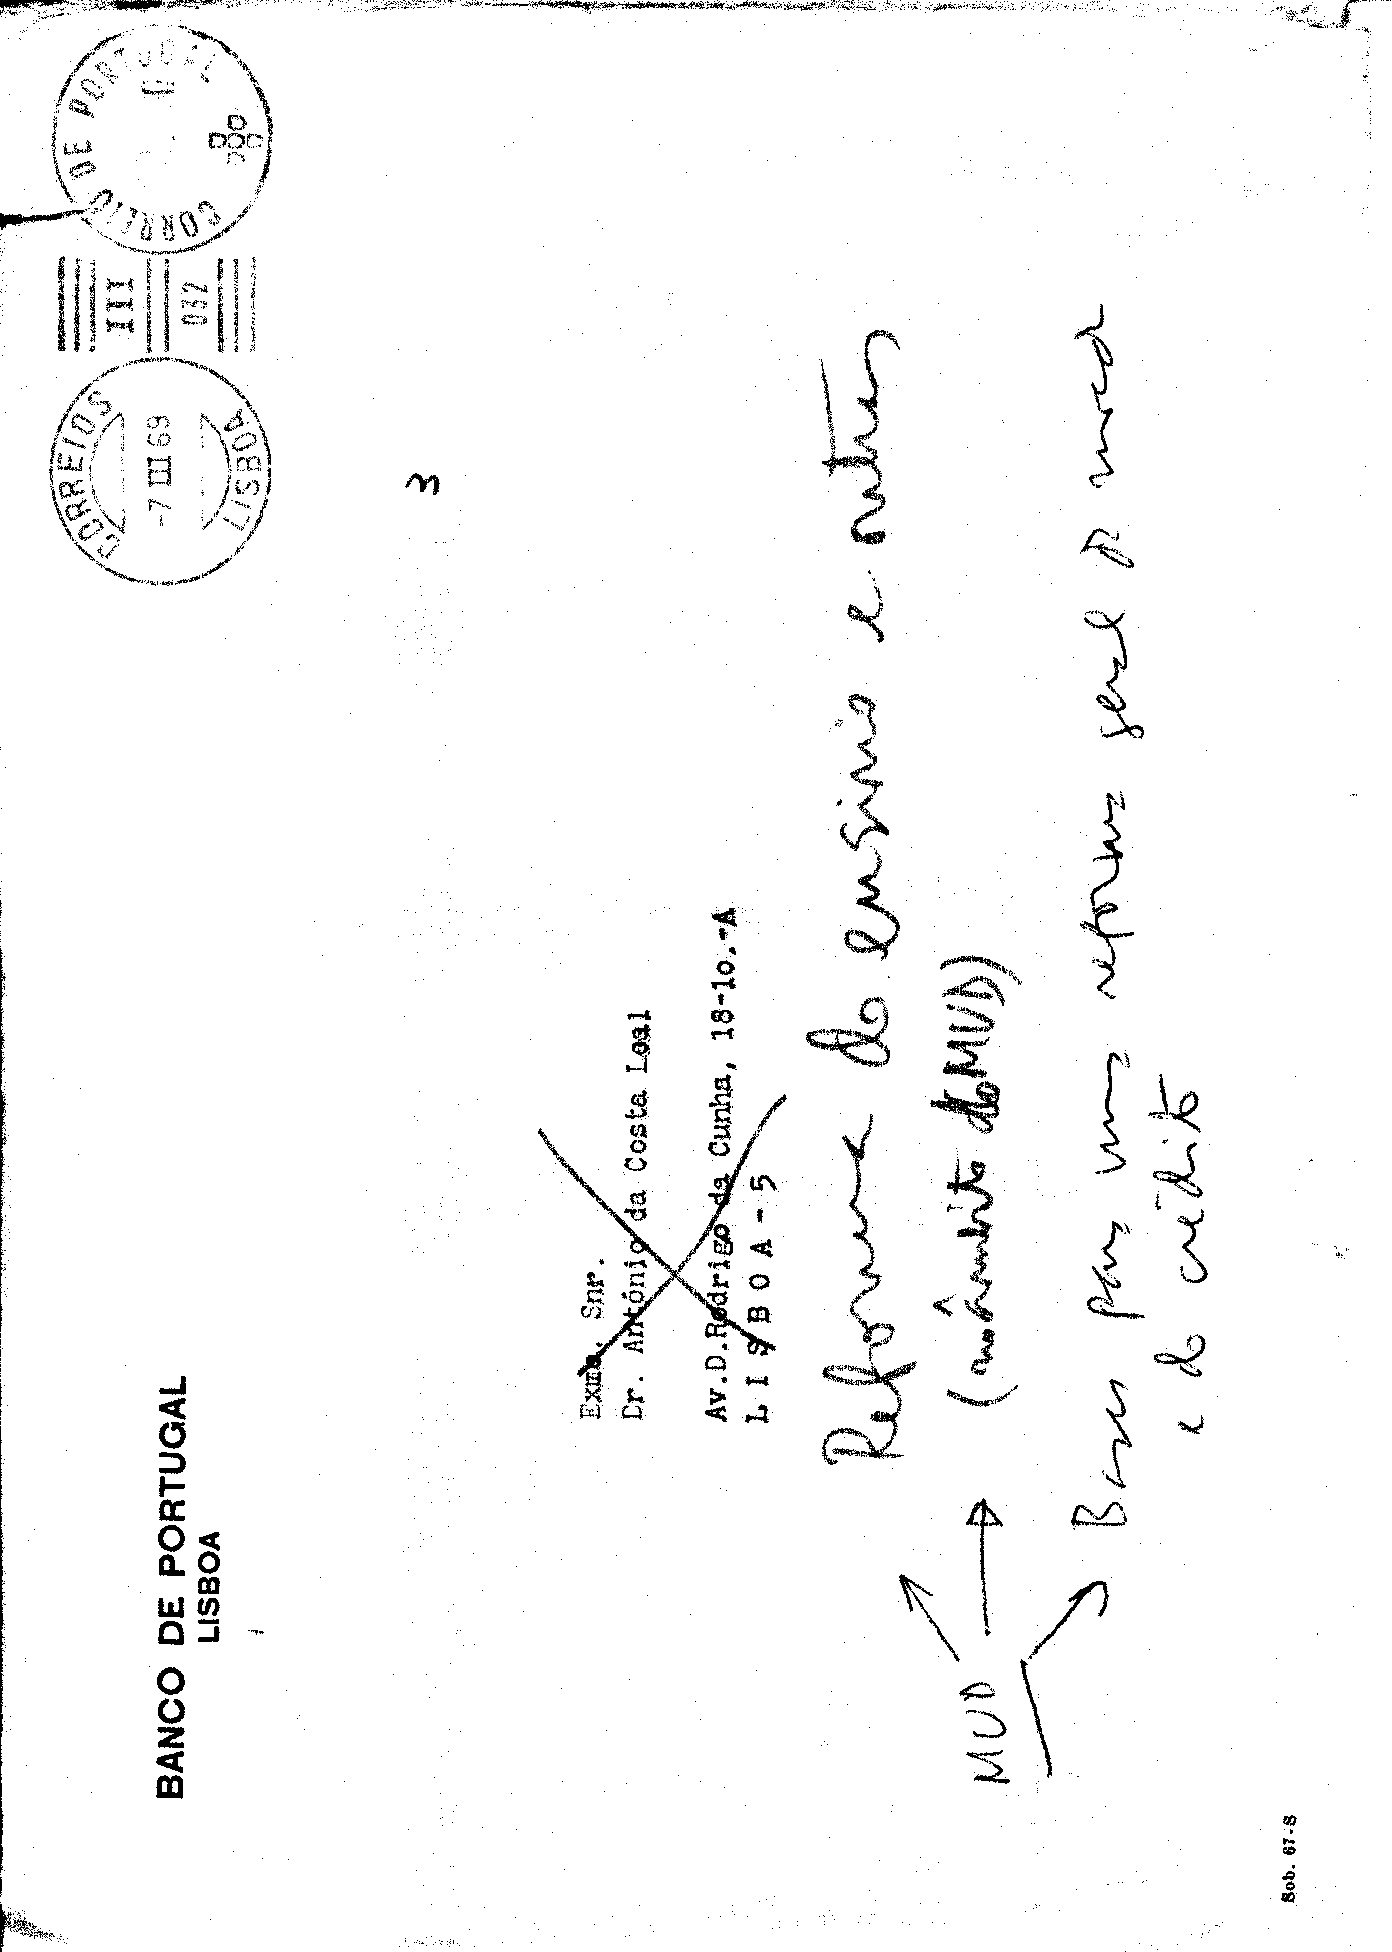 BANCO DE PORTUGAL
LISBOA
CORREIOS
-7 III 69
LISBOA
III
032
CORREIO DE PORTUGAL
3
Exmo. Snr.
Dr. António da Costa Leal
Av.D.Rodrigo da Cunha, 18-1o.-A
L I S B O A - 5
Reforma do ensino e outras
(no âmbito do MUD)
MUD
Bases para uma reforma geral d moeda
e do crédito
Sob. 67-S